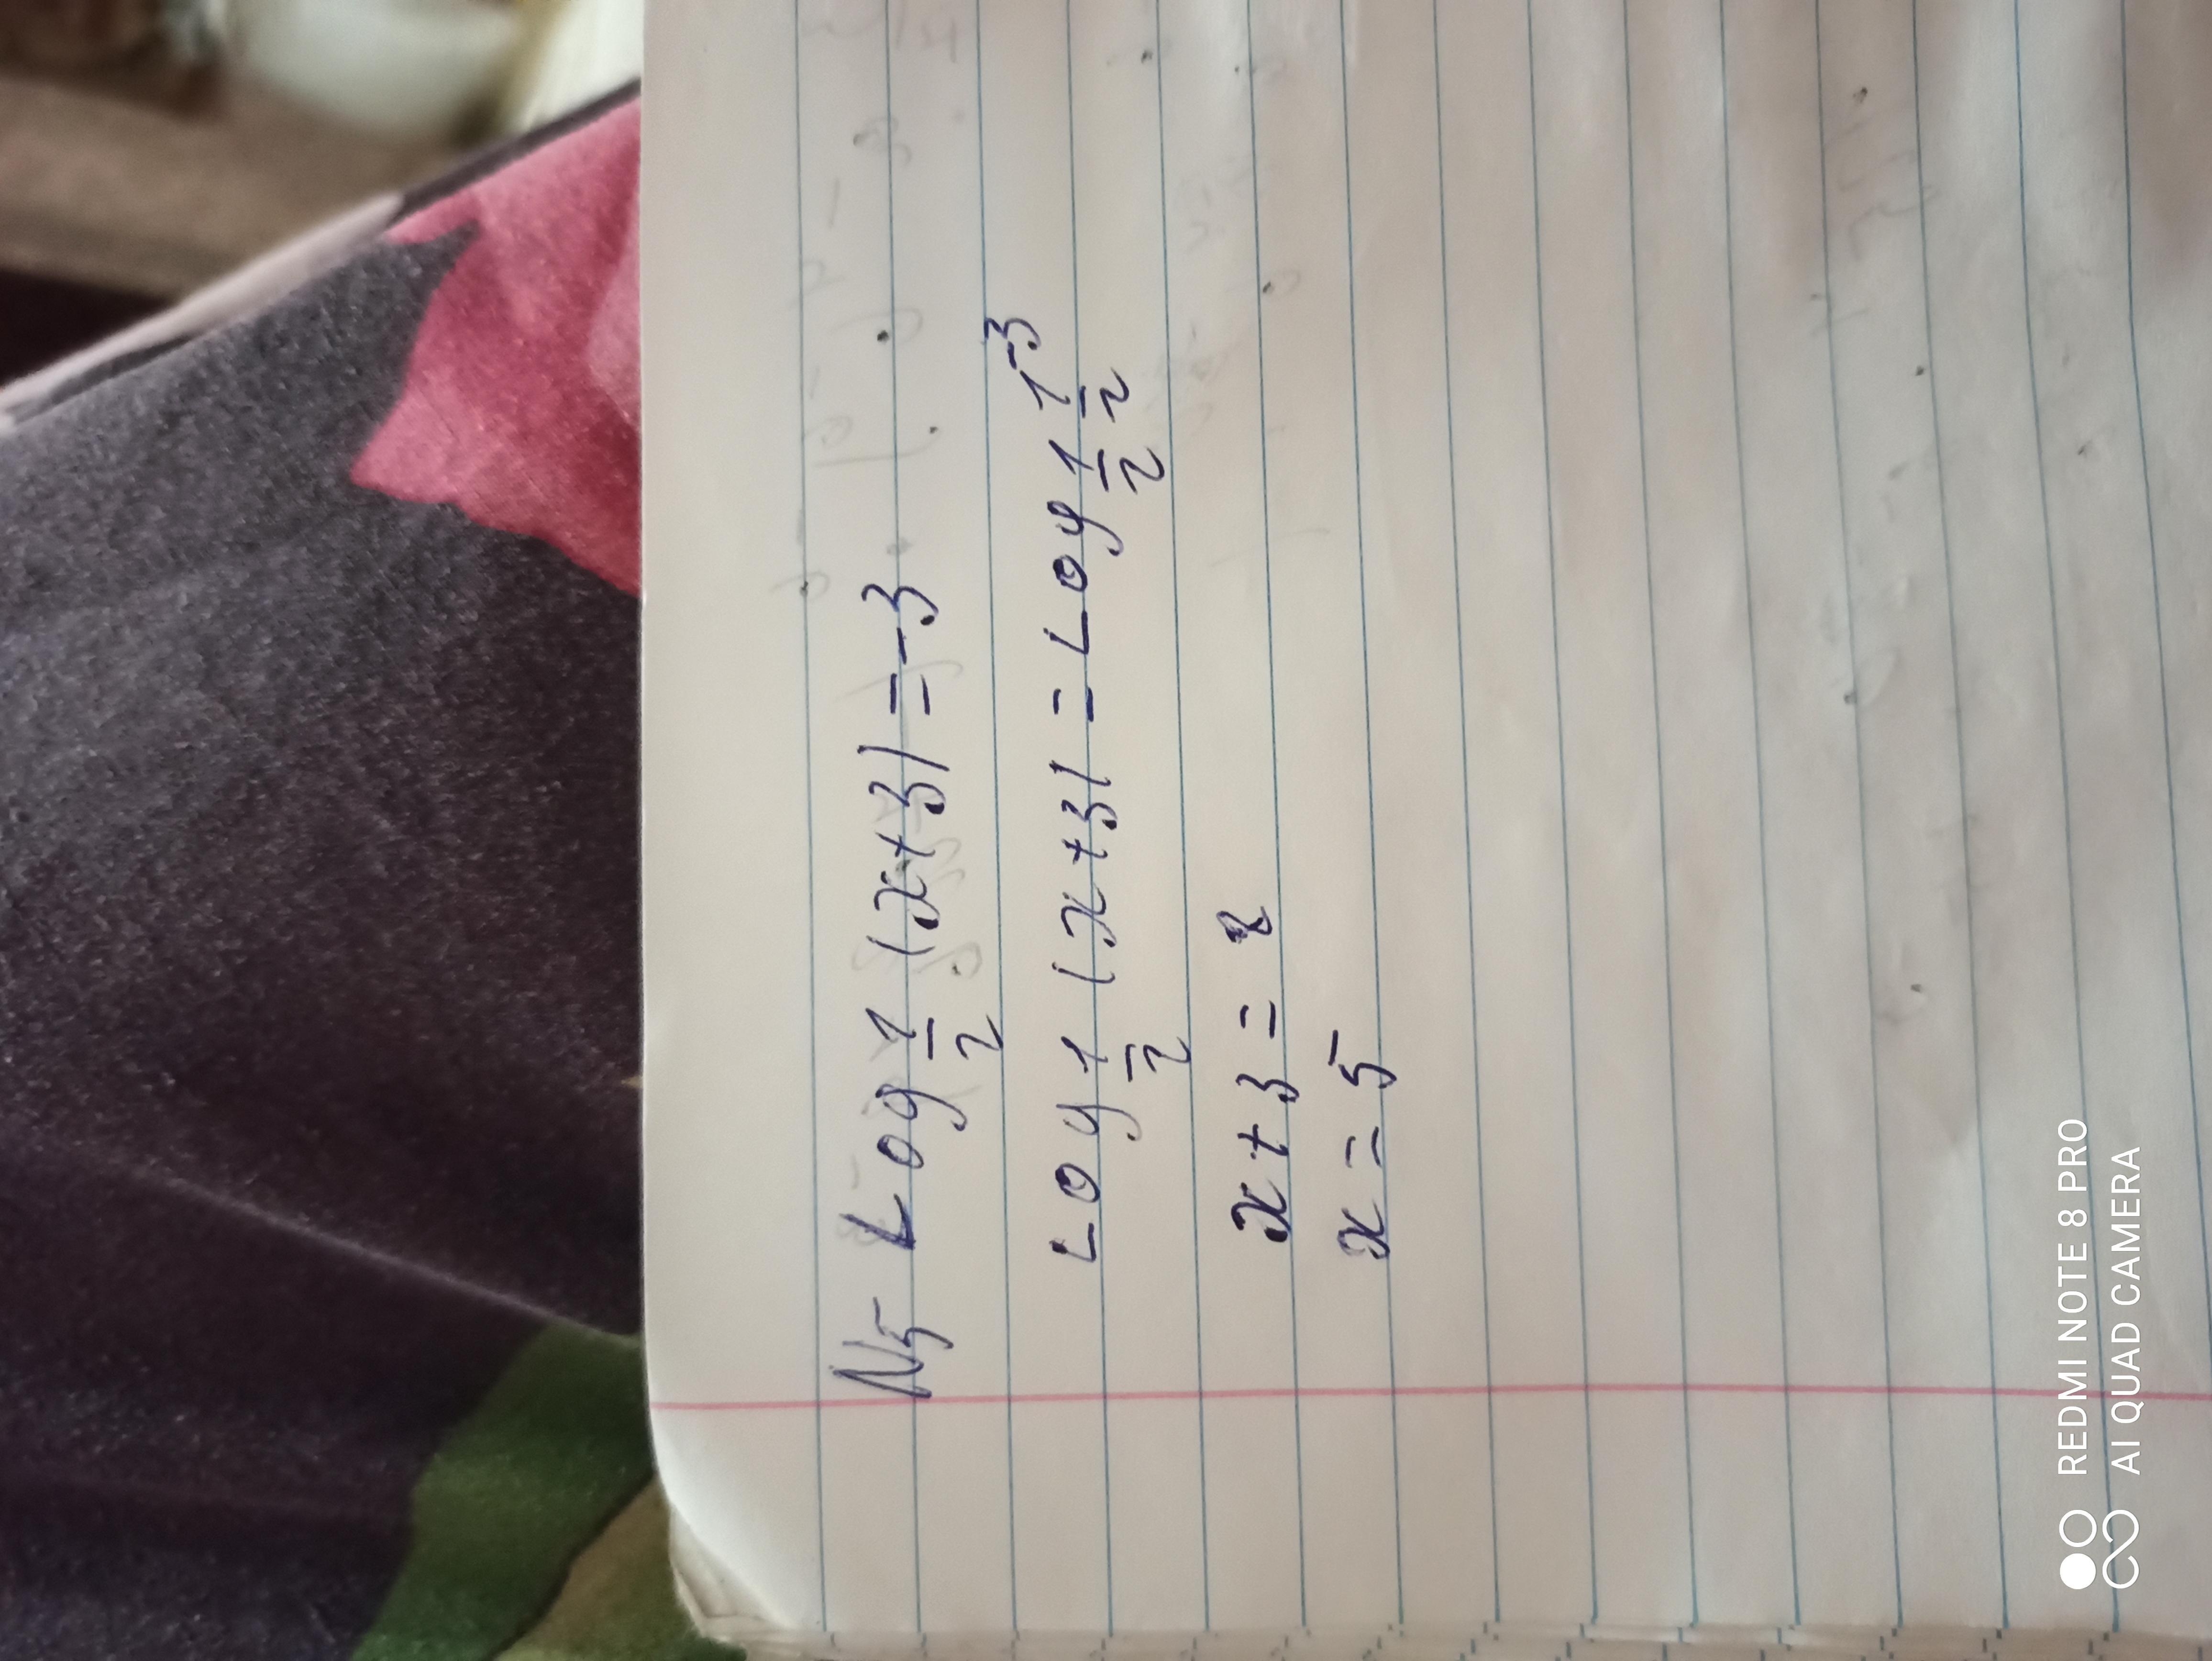 N5 Log 1/2 (x+3) = -3
Log 1/2 (x+3) = Log 1/2 1/2^-3
x+3 = 8
x = 5
REDMI NOTE 8 PRO
AI QUAD CAMERA